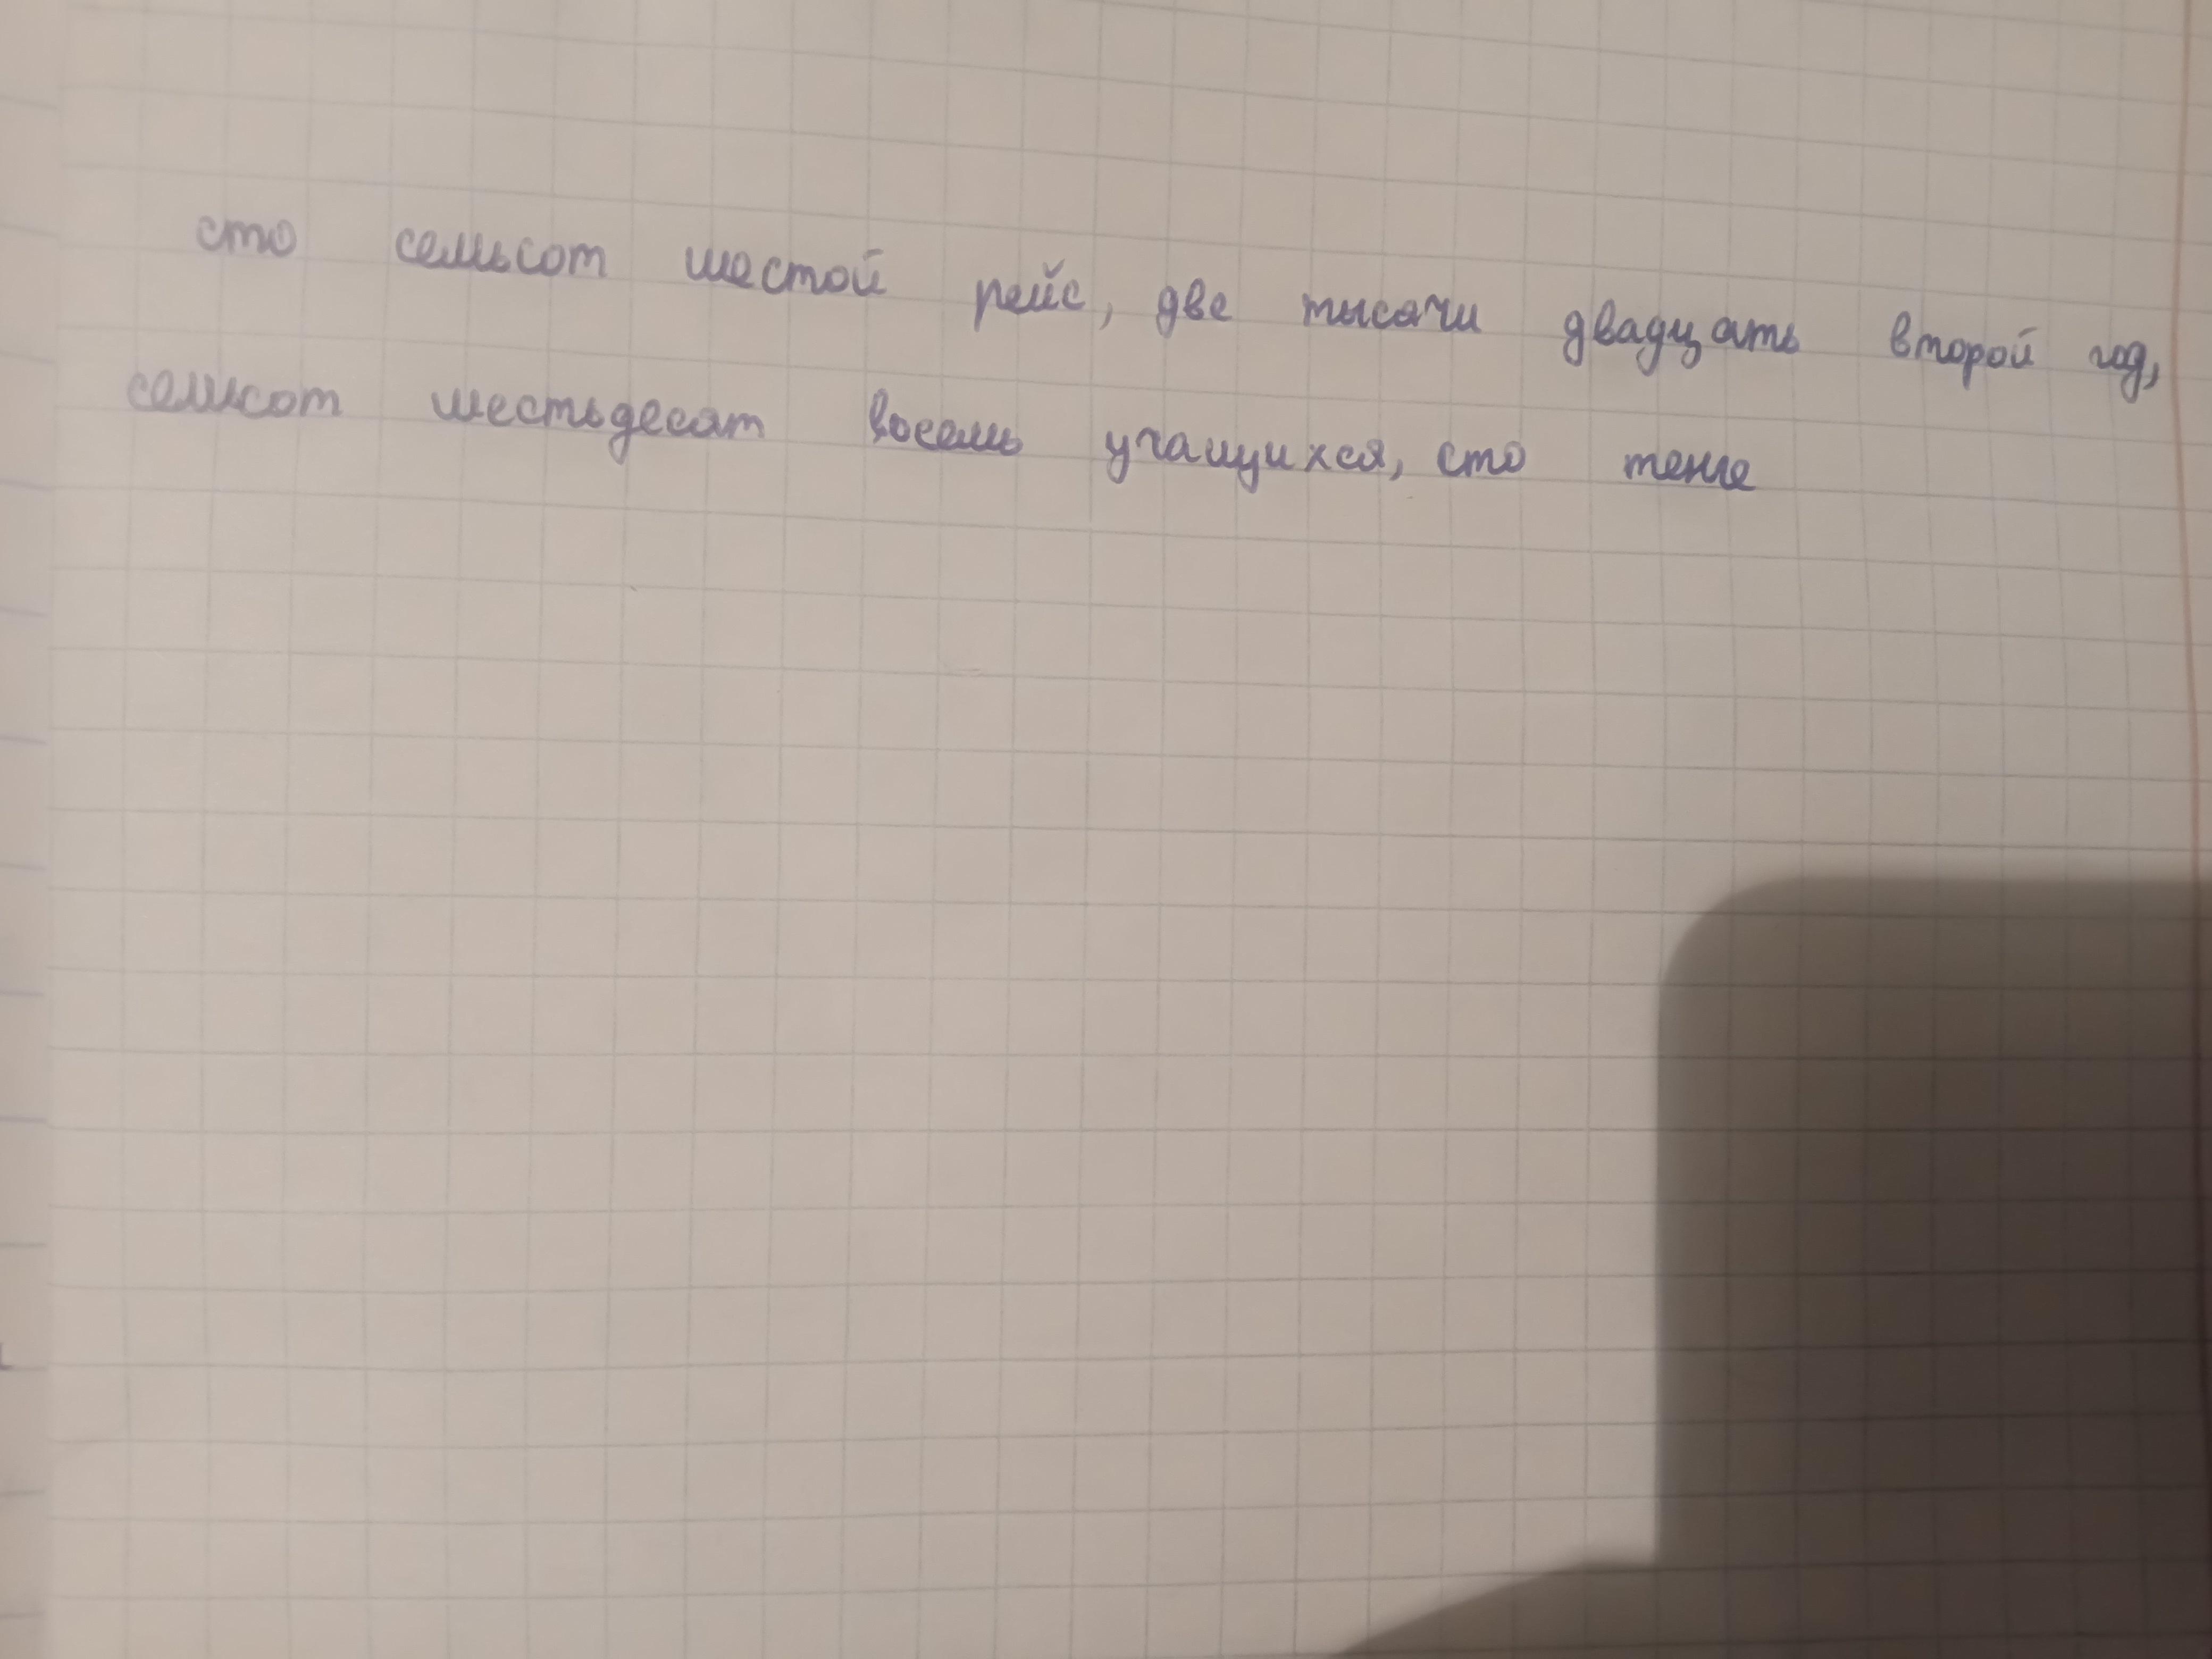 сто семьсот шестой рейс, две тысячи двадцать второй год,
семьсот шестьдесят восемь учащихся, сто тенге